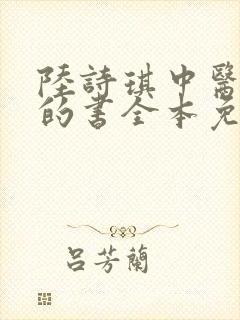 陸詩琪中醫
的書全本免
呂芳蘭